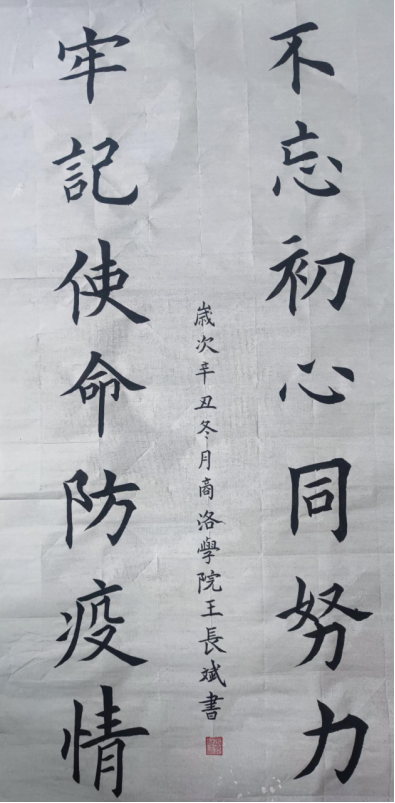 不忘初心同努力
牢記使命防疫情
歲次辛丑冬月商洛學院王長斌書